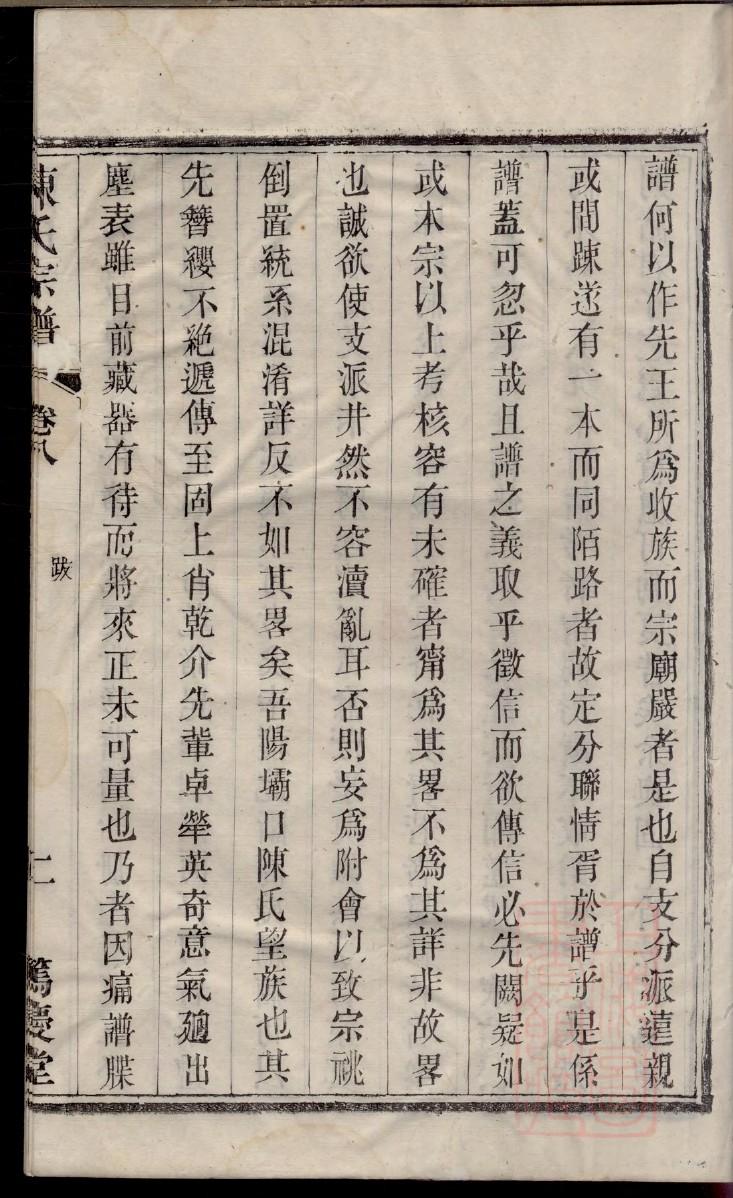 譜何以作先王所爲收族而宗廟嚴者是也自支分派遠親
或間踈遂有一本而同陌路者故定分聯情胥於譜乎是係
譜蓋可忽乎哉且譜之義取乎徵信而欲傳信必先闕疑如
或本宗以上考核容有未確者甯爲其畧不爲其詳非故畧
也誠欲使支派井然不容瀆亂耳否則妄爲附會以致宗祧
倒置統系混淆詳反不如其畧矣吾陽壩口陳氏望族也其
先簪纓不絶遞傳至固上肖乾介先輩卓犖英奇意氣廻出
塵表雖目前藏器有待而將來正未可量也乃者因痛譜牒
陳氏宗譜 卷八 跋 二 篤慶堂